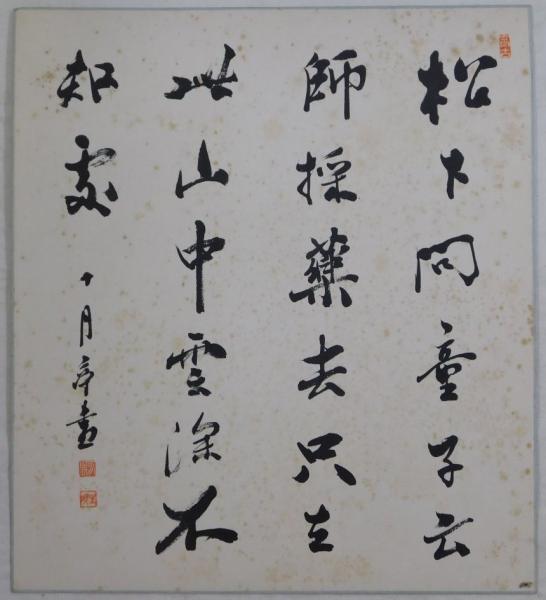 松下問童子云
師採藥去只在
此山中雲深不
知處
十月亭書